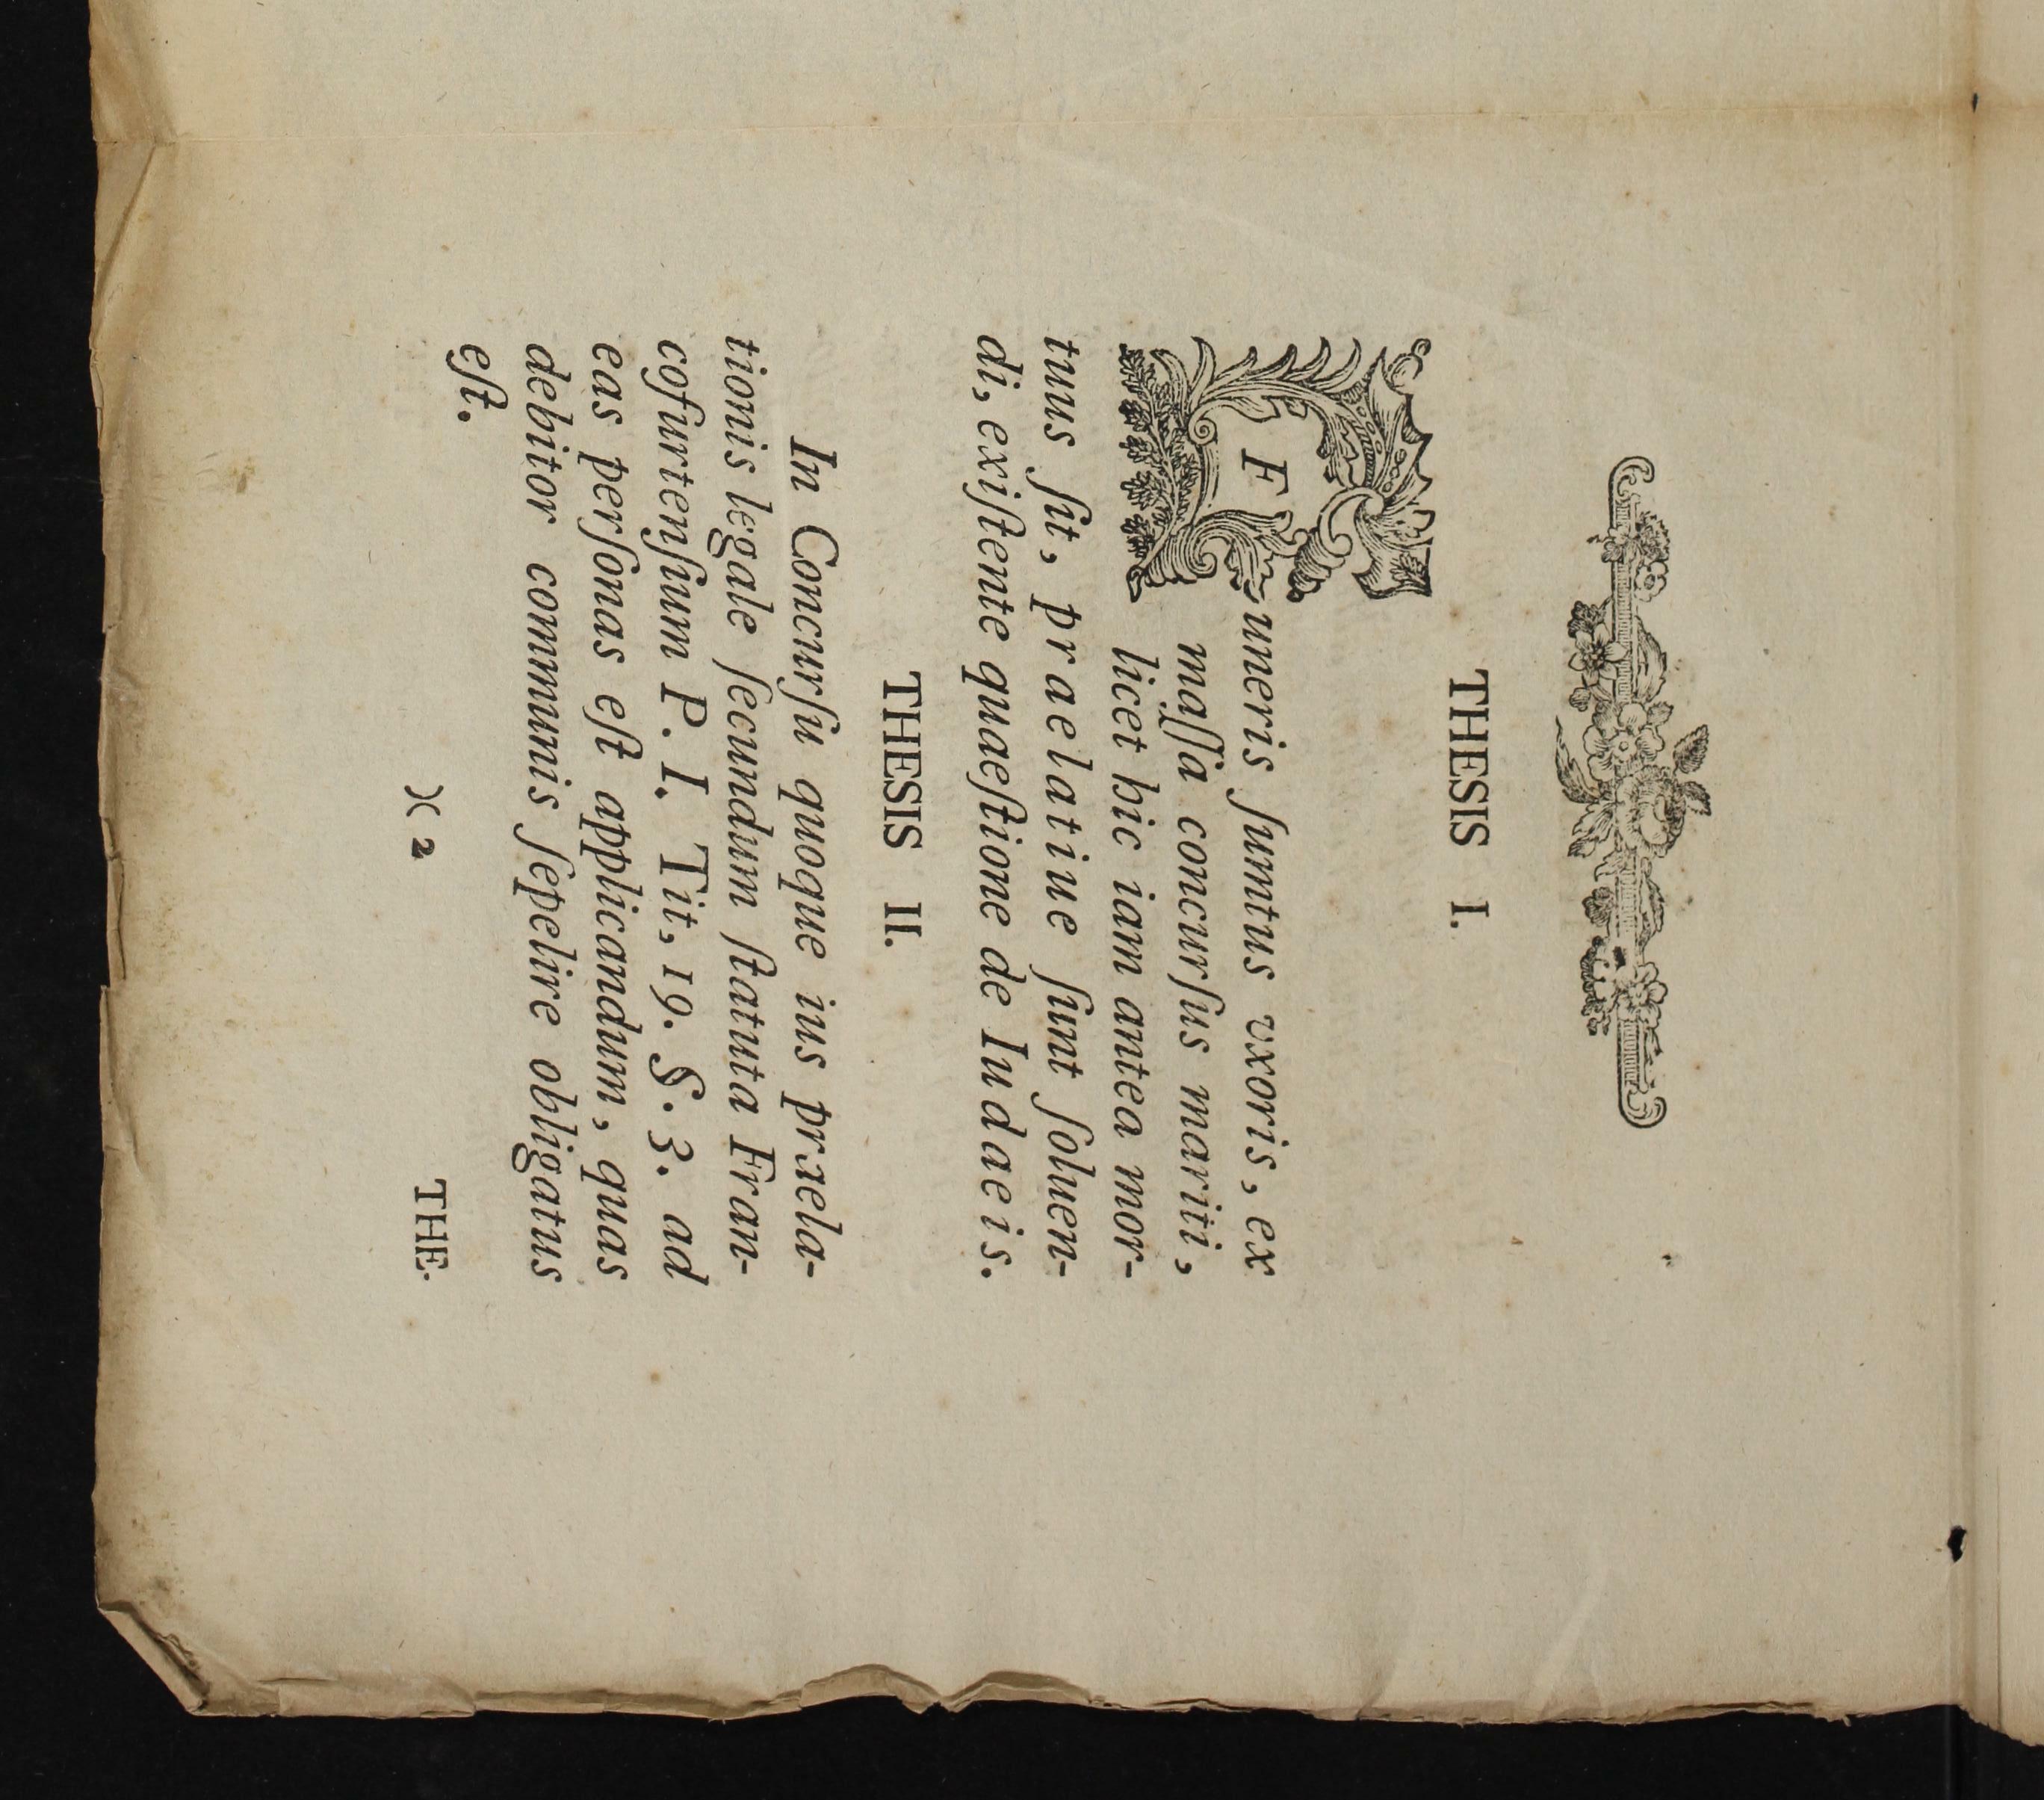 THESIS I.
Funeris ſumtus vxoris, ex
maſſa concurſus mariti,
licet hic iam antea mor-
tuus ſit, praelatiue ſunt ſoluen-
di, exiſtente quaeſtione de Iudaeis.
THESIS II.
In Concurſu quoque ius praela-
tionis legale ſecundum ſtatuta Fran-
cofurtenſium P. I. Tit. 19. §. 3. ad
eas perſonas eſt applicandum, quas
debitor communis ſepelire obligatus
eſt.
)( 2
THE-